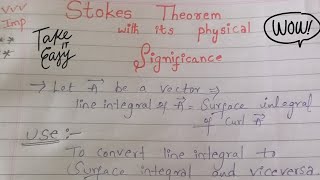 VVV
Imp
**
Stokes Theorem
with its physical
Significance
Take
it
Easy
WOW!
→ Let A be a vector ⇒
line integral of A = Surface integral
of curl A
USE :-
To convert line integral to
Surface integral and viceversa